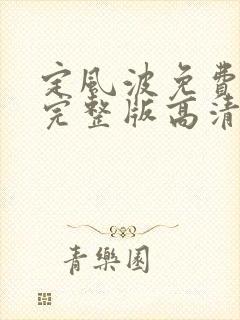 定風波免費
完整版高清
青樂園